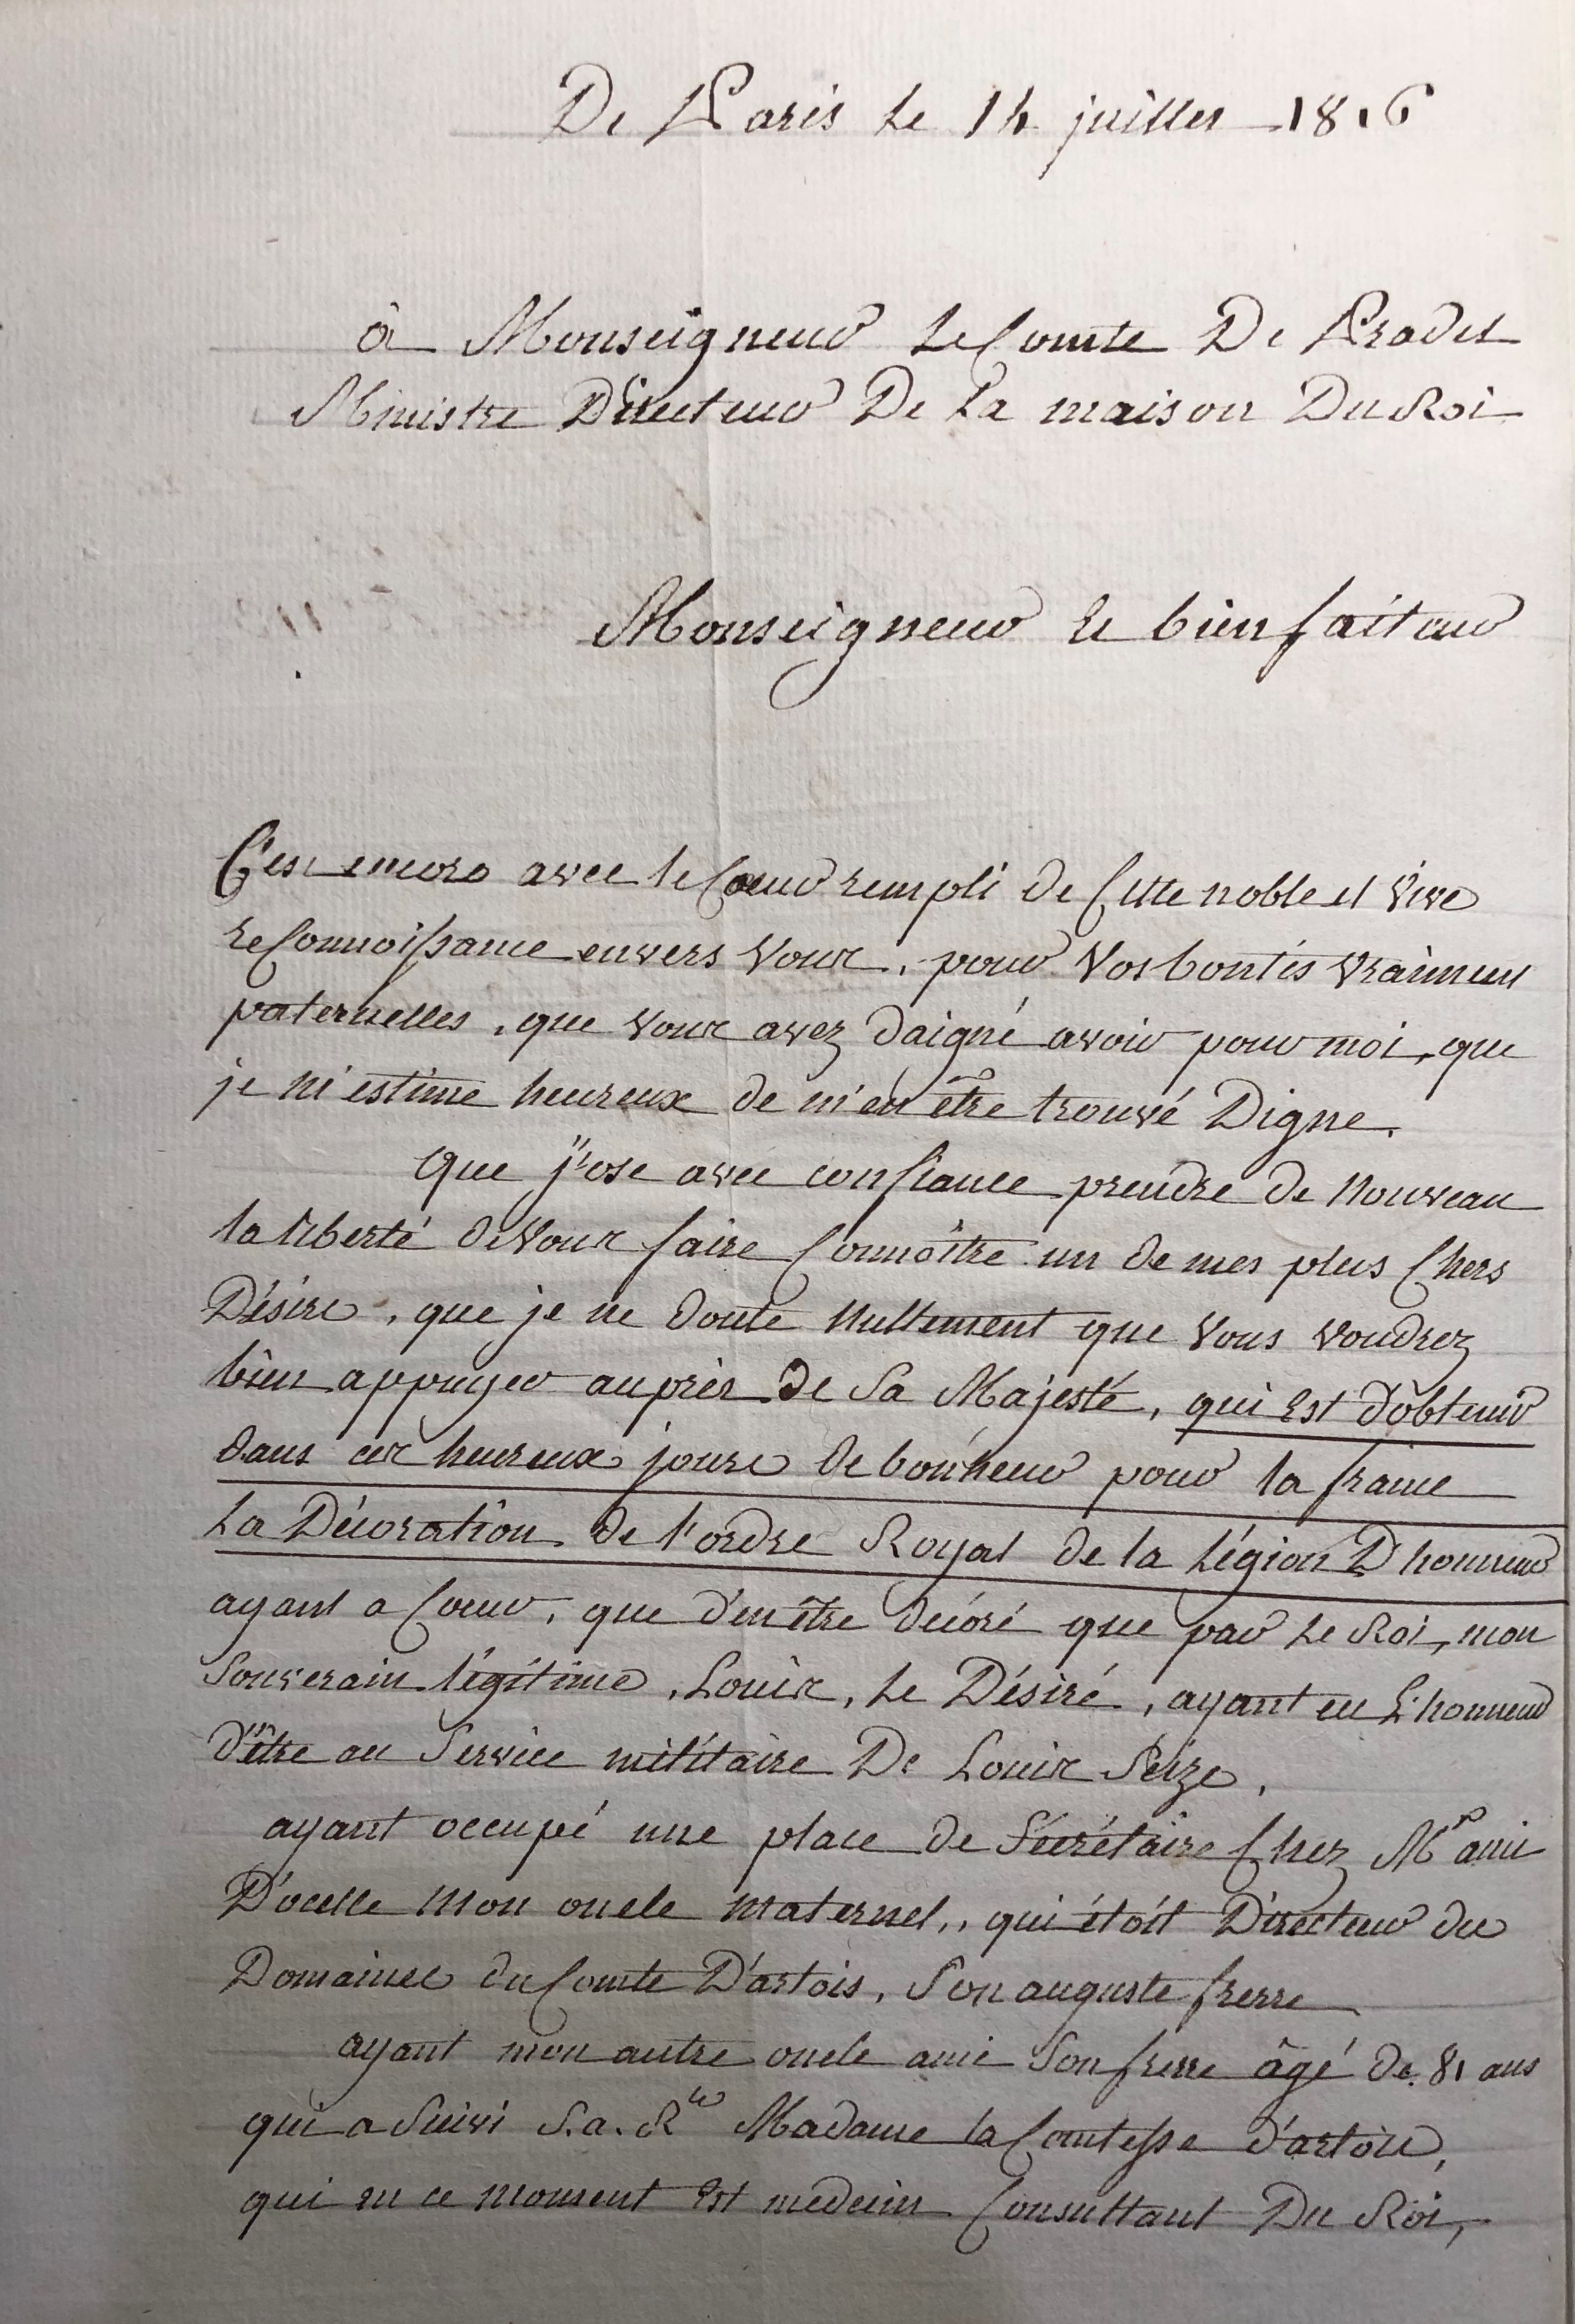 De Paris le 14 juillet 1816
à Monseigneur Le Comte De Pradel
Ministre Directeur De La maison Du Roi
Monseigneur le bienfaiteur
C'est encore avec le Coeur rempli de Cette noble et vive
reconnoissance envers vous, pour vos bontés vraiment
paternelles, que vous avez daigné avoir pour moi, que
je m'estime heureux de m'en être trouvé Digne.
Que j'ose avec confiance prendre de nouveau
la liberté de vous faire Connoître un de mes plus Chers
Désirs, que je ne doute nullement que vous voudrez
bien appuyer auprès de Sa Majesté, qui Est d'obtenir
dans ces heureux jours de bonheur pour la france
La Décoration de l'ordre Royal de la Légion D'honneur
ayant a Coeur, que d'en être décoré que par Le Roi, mon
Souverain légitime, Louis, Le Désiré, ayant eu L'honneur
d'être au Service militaire De Louis Seize,
ayant occupé une place de Sécrétaire Chez Mr ami
D'ocelle mon oncle maternel, qui étoit Directeur des
Domaines du Comte D'artois, Son auguste frerre
ayant mon autre oncle amie Son frerre âgé de 81 ans
qui a Suivi S.a.R.le Madame la Comtesse d'artois,
qui en ce moment Est medecin Consultant Du Roi,